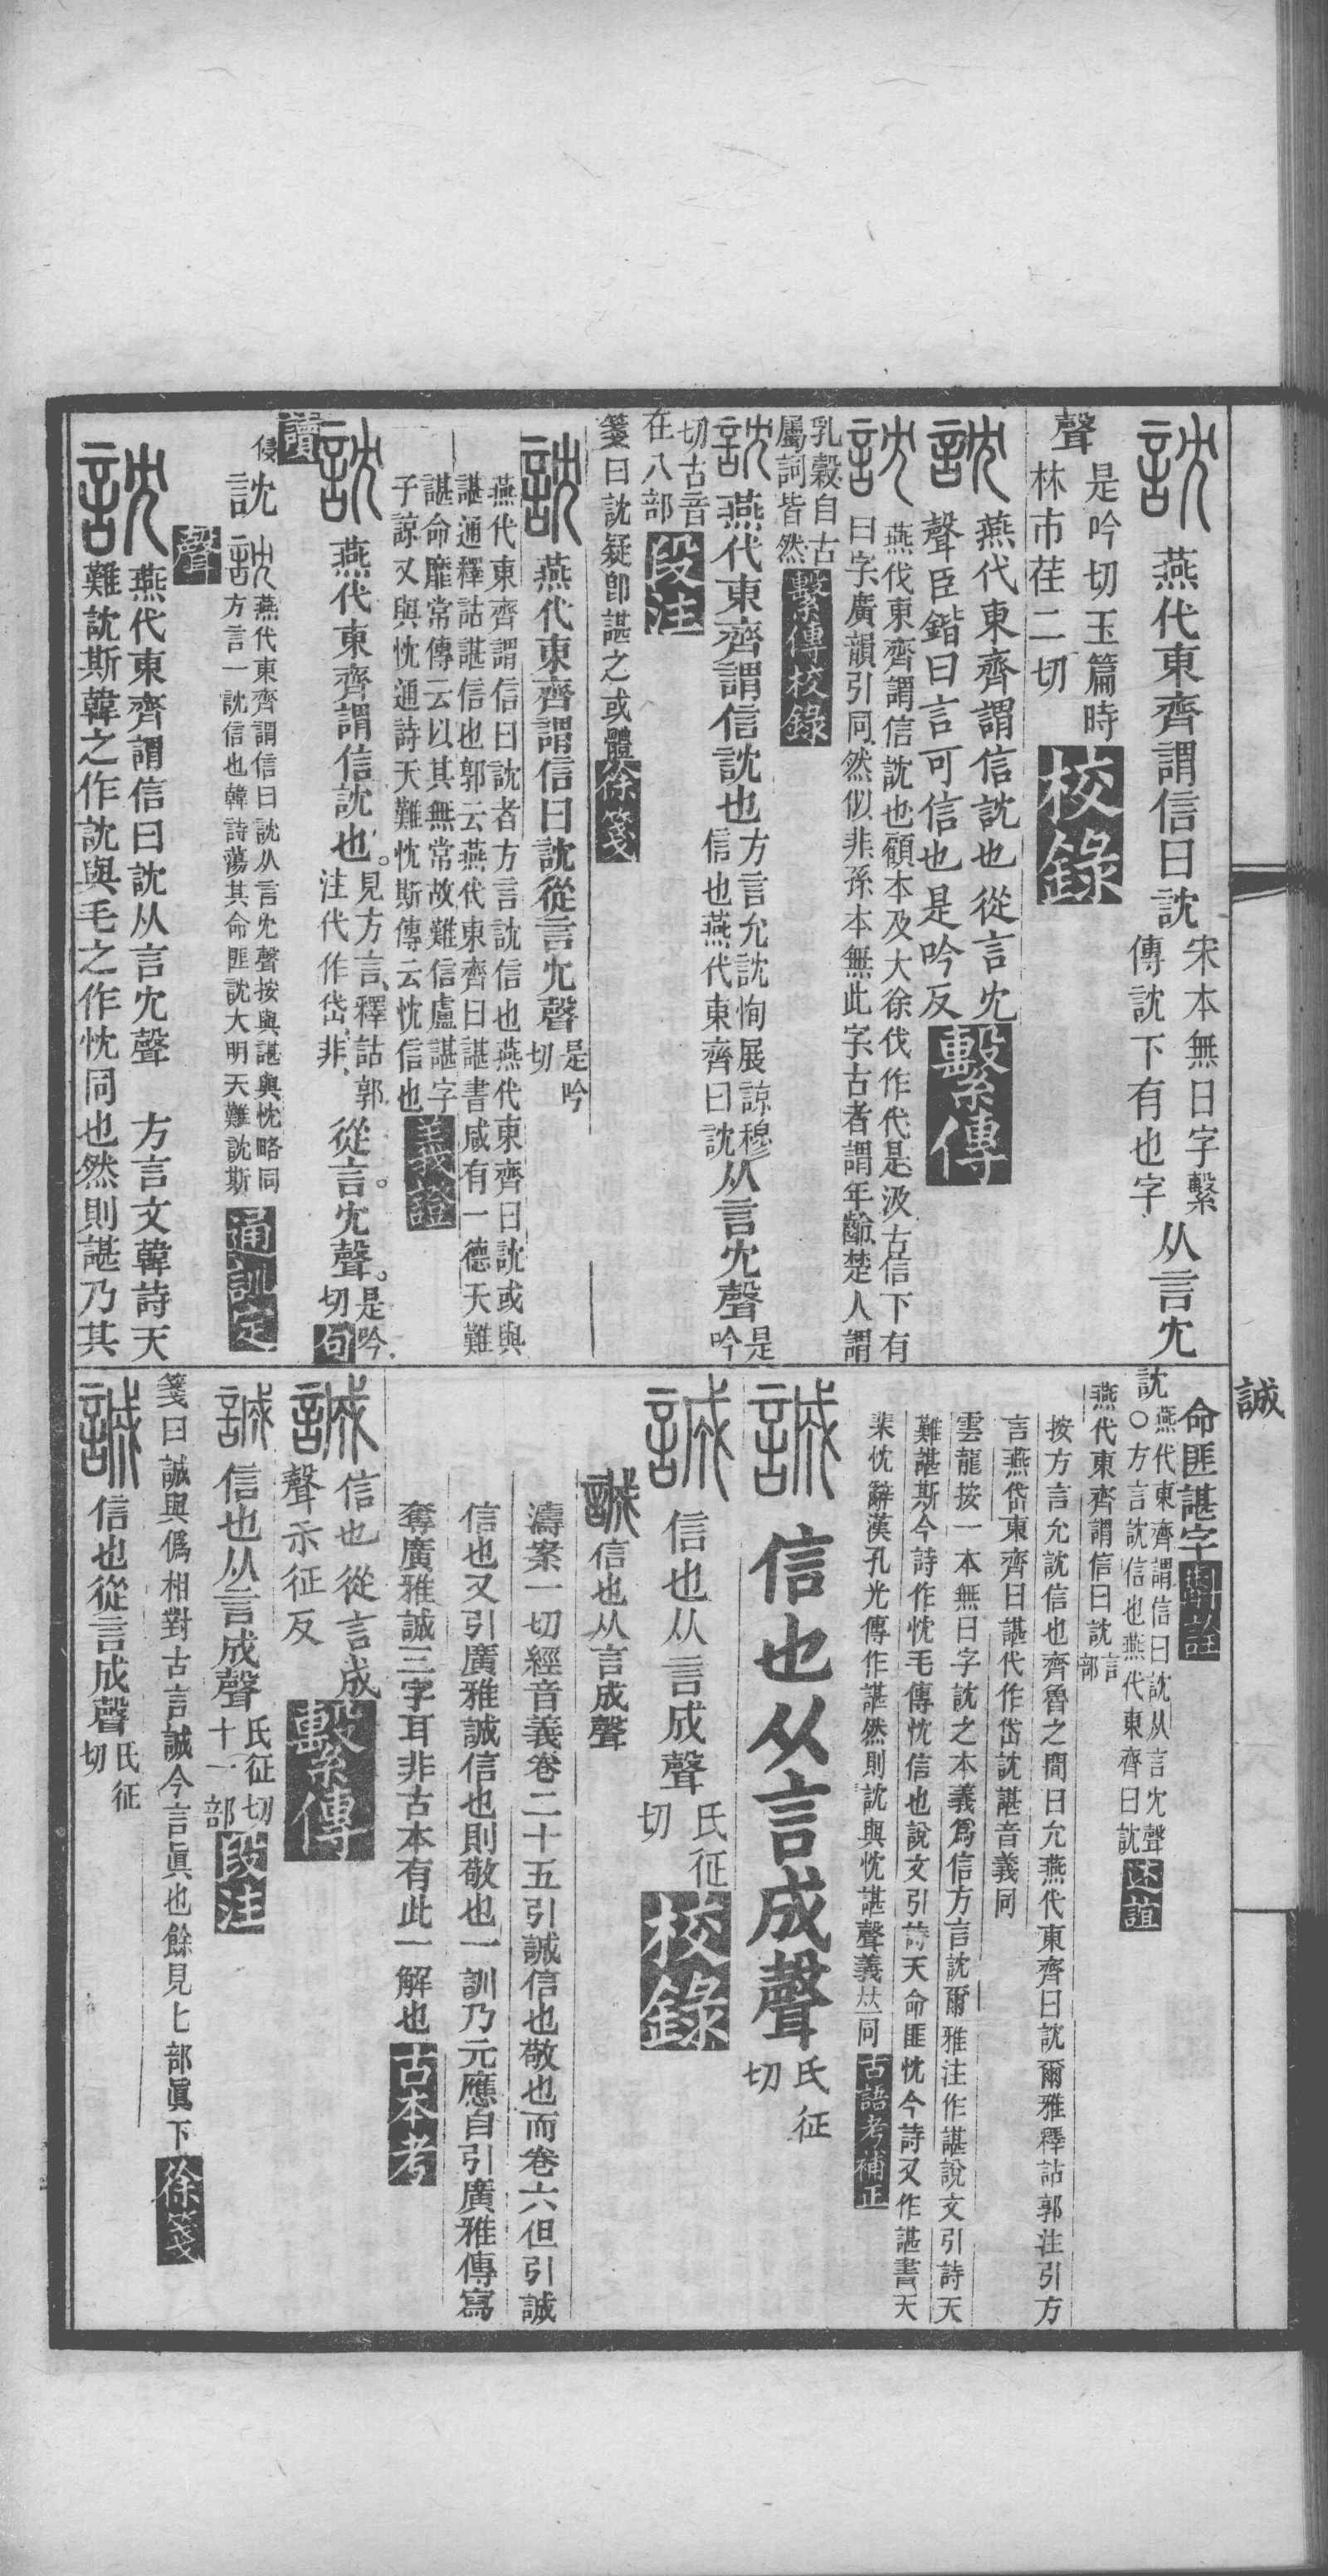 訦 燕代東齊謂信曰訦
宋本無曰字繫
傳訦下有也字
从言冘
聲
是吟切玉篇時
林市荏二切
校錄
訦 燕代東齊謂信訦也從言冘
聲臣鍇曰言可信也是吟反
繫傳
訦 燕伐東齊謂信訦也顧本及大徐伐作代是汲古信下有
曰字廣韻引同然似非孫本無此字古者謂年齡楚人謂
乳穀自古
屬詞皆然
繫傳校錄
訦 燕代東齊謂信訦也
方言允訦恂展諒穆
信也燕代東齊曰訦
从言冘聲
是
吟
切古音
在八部
段注
箋曰訦疑卽諶之或體
徐箋
訦 燕代東齊謂信曰訦從言冘聲
是吟
切
燕代東齊謂信曰訦者方言訦信也燕代東齊曰訦或與
諶通釋詁諶信也郭云燕代東齊曰諶書咸有一德天難
諶命靡常傳云以其無常故難信盧諶字
子諒又與忱通詩天難忱斯傳云忱信也
義證
訦 燕代東齊謂信訦也
見方言釋詁郭
注代作岱非
從言冘聲
是吟
切
句
讀
侵
訦 訦 燕代東齊謂信曰訦从言冘聲按與諶與忱略同
方言一訦信也韓詩蕩其命匪訦大明天難訦斯
通訓定
聲
訦 燕代東齊謂信曰訦从言冘聲 方言文韓詩天
難訦斯韓之作訦與毛之作忱同也然則諶乃其
誠
命匪諶字
斠詮
訦 燕代東齊謂信曰訦从言冘聲
○方言訦信也燕代東齊曰訦
述誼
燕代東齊謂信曰訦
言
部
按方言允訦信也齊魯之間曰允燕代東齊曰訦爾雅釋詁郭注引方
言燕岱東齊曰諶代作岱訦諶音義同
雲龍按一本無曰字訦之本義爲信方言訦爾雅注作諶說文引詩天
難諶斯今詩作忱毛傳忱信也說文引詩天命匪忱今詩又作諶書天
棐忱辭漢孔光傳作諶然則訦與忱諶聲義𠀤同
古語考補正
誠 信也从言成聲
氏征
切
誠 信也从言成聲
氏征
切
校錄
誠 信也从言成聲
濤案一切經音義卷二十五引誠信也敬也而卷六但引誠
信也又引廣雅誠信也則敬也一訓乃元應自引廣雅傳寫
奪廣雅誠三字耳非古本有此一解也
古本考
誠 信也從言成
聲示征反
繫傳
誠 信也从言成聲
氏征切
十一部
段注
箋曰誠與僞相對古言誠今言眞也餘見匕部眞下
徐箋
誠 信也從言成聲
氏征
切